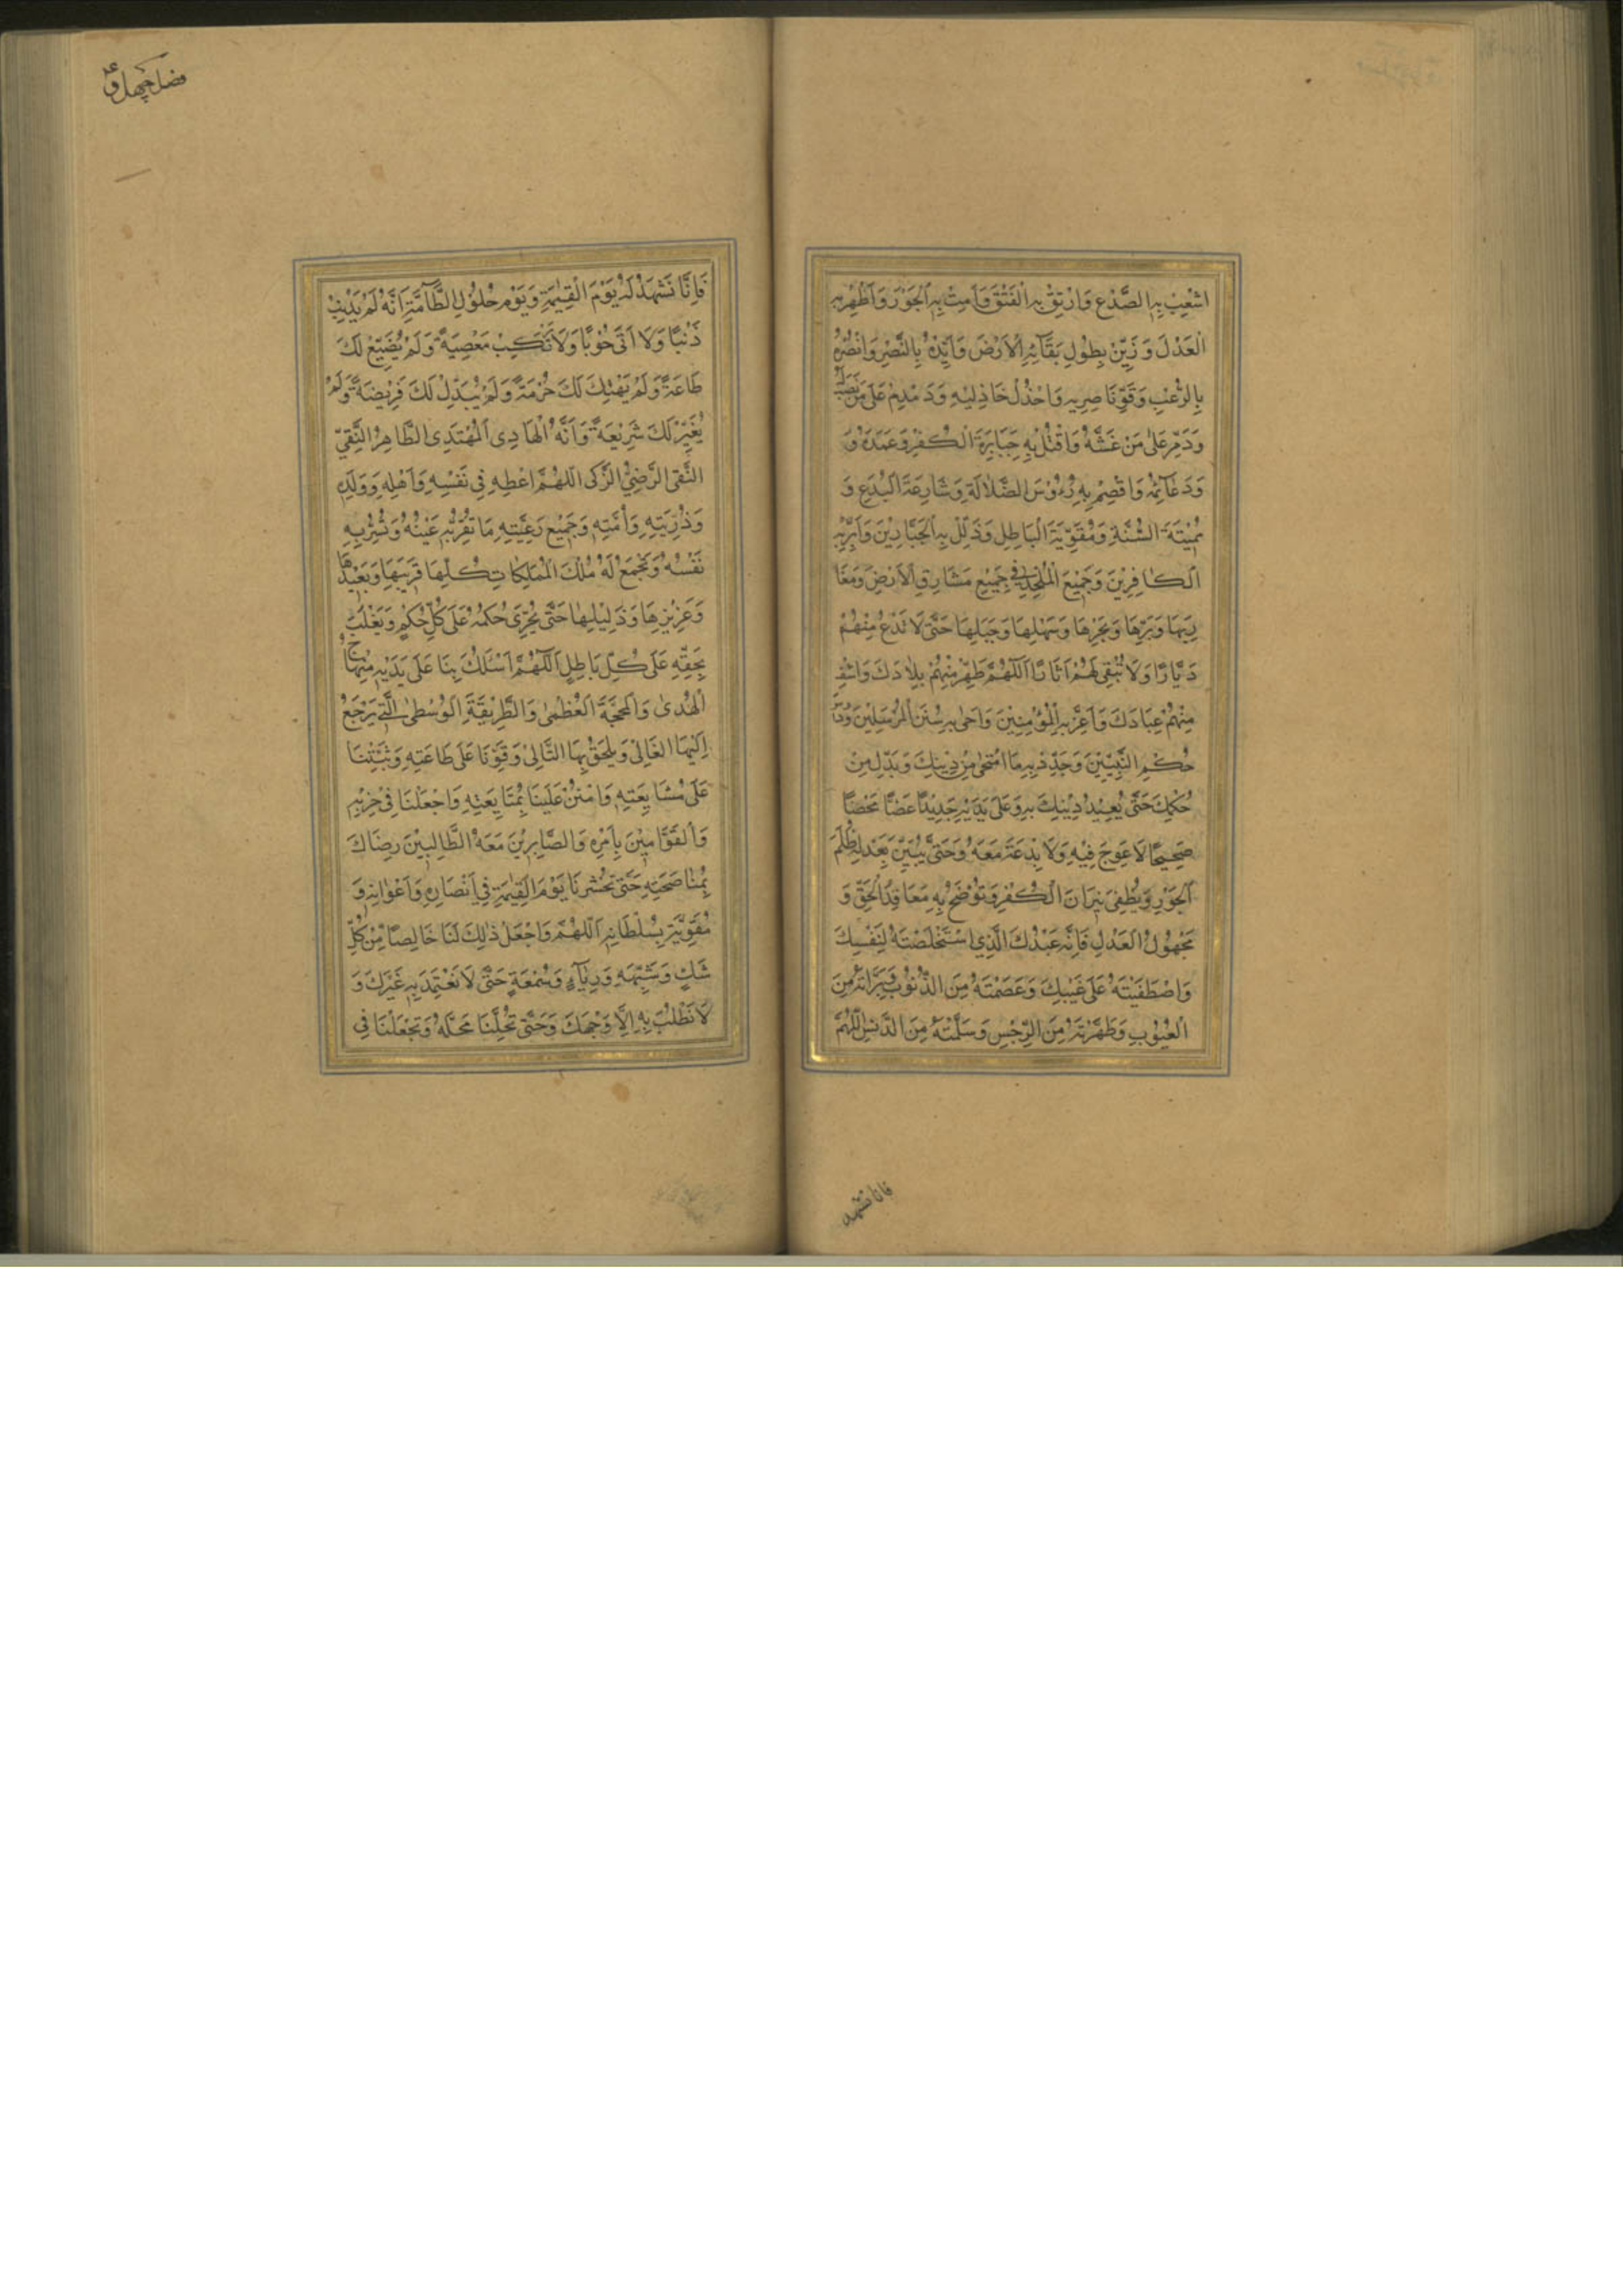 اشْعَبْ بِهِ الصَّدْعَ وَارْتِقْ بِهِ الْفَتْقَ وَاَمِتْ بِهِ الْجَوْرَ وَاَظْهِرْ بِهِ
الْعَدْلَ وَزَيِّنْ بِطُولِ بَقَآئِهِ الْاَرْضَ وَاَيِّدْهُ بِالنَّصْرِ وَانْصُرْهُ
بِالرُّعْبِ وَقَوِّ نَاصِرِيهِ وَاخْذُلْ خَاذِلِيهِ وَدَمْدِمْ عَلَى مَنْ نَصَبَ لَهُ
وَدَمِّرْ عَلَى مَنْ غَشَّهُ وَاقْتُلْ بِهِ جَبَابِرَةَ الْكُفْرِ وَعَمَدَهُ وَ
وَدَعَآئِمَهُ وَاقْصِمْ بِهِ رُءُوْسَ الضَّلَالَةِ وَشَارِعَةَ الْبِدَعِ وَ
مُمِيْتَةَ السُّنَّةِ وَمُقَوِّيَةَ الْبَاطِلِ وَذَلِّلْ بِهِ الْجَبَّارِيْنَ وَاَبِرْ بِهِ
الْكَافِرِيْنَ وَجَمِيْعَ الْمُلْحِدِيْنَ فِي جَمِيْعِ مَشَارِقِ الْاَرْضِ وَمَغَا
رِبِهَا وَبَرِّهَا وَبَحْرِهَا وَسَهْلِهَا وَجَبَلِهَا حَتَّى لَا تَدَعَ مِنْهُمْ
دَيَّارًا وَلَا تُبْقِيَ لَهُمْ اَثَارًا اَللّٰهُمَّ طَهِّرْ مِنْهُمْ بِلَادَكَ وَاشْفِ
مِنْهُمْ عِبَادَكَ وَاَعِزَّ بِهِ الْمُؤْمِنِيْنَ وَاَحْيِ بِهِ سُنَنَ الْمُرْسَلِيْنَ وَدَا
حُكْمِ النَّبِيِّيْنَ وَجَدِّدْ بِهِ مَا امْتَحٰى مِنْ دِيْنِكَ وَبَدِّلْ مِنْ
حُكْمِكَ حَتَّى تُعِيْدَ دِيْنَكَ بِهِ وَعَلَى يَدَيْهِ جَدِيْدًا غَضًّا مَحْضًا
صَحِيْحًا لَا عِوَجَ فِيْهِ وَلَا بِدْعَةَ مَعَهُ وَحَتَّى يُبَيِّنَ بِعَدْلِهِ ظُلَمَ
الْجَوْرِ وَيُطْفِئَ نِيْرَانَ الْكُفْرِ وَتُوْضِحَ بِهِ مَعَاقِدَ الْحَقِّ وَ
مَجْهُوْلَ الْعَدْلِ فَاِنَّهُ عَبْدُكَ الَّذِي اسْتَخْلَصْتَهُ لِنَفْسِكَ
وَاصْطَفَيْتَهُ عَلَى غَيْبِكَ وَعَصَمْتَهُ مِنَ الذُّنُوْبِ وَبَرَّاْتَهُ مِنَ
الْعُيُوْبِ وَطَهَّرْتَهُ مِنَ الرِّجْسِ وَسَلَّمْتَهُ مِنَ الدَّنَسِ اللّٰهُمَّ
فانا نشهد
فَاِنَّا نَشْهَدُ لَهُ يَوْمَ الْقِيٰمَةِ وَيَوْمَ حُلُوْلِ الطَّآمَّةِ اَنَّهُ لَمْ يُذْنِبْ
ذَنْبًا وَلَا اَتَى حُوْبًا وَلَا تَرْتَكِبْ مَعْصِيَةً وَلَمْ يُضَيِّعْ لَكَ
طَاعَةً وَلَمْ يَهْتِكْ لَكَ حُرْمَةً وَلَمْ يُبَدِّلْ لَكَ فَرِيْضَةً وَلَمْ
يُغَيِّرْ لَكَ شَرِيْعَةً وَاَنَّهُ الْهَادِى الْمُهْتَدِى الطَّاهِرُ النَّقِيُّ
التَّقِى الرَّضِيُّ الزَّكِى اَللّٰهُمَّ اَعْطِهِ فِي نَفْسِهِ وَاَهْلِهِ وَوَلَدِهِ
وَذُرِّيَّتِهِ وَاُمَّتِهِ وَجَمِيْعِ رَعِيَّتِهِ مَا تُقِرُّ بِهِ عَيْنَهُ وَتُسِرُّ بِهِ
نَفْسَهُ وَتَجْمَعُ لَهُ مُلْكَ الْمَمْلِكَاتِ كُلِّهَا قَرِيْبِهَا وَبَعِيْدِهَا
وَعَزِيْزِهَا وَذَلِيْلِهَا حَتَّى يَجْرِيَ حُكْمَهُ عَلَى كُلِّ حُكْمٍ وَيَغْلَبَ
بِحَقِّهِ عَلَى كُلِّ بَاطِلٍ اَللّٰهُمَّ اسْلُكْ بِنَا عَلَى يَدَيْهِ مِنْهَاجَ
الْهُدٰى وَالْمَحَجَّةَ الْعُظْمٰى وَالطَّرِيْقَةَ الْوُسْطٰى الَّتِي يَرْجَعُ
اِلَيْهَا الْغَالِيْ وَيَلْحَقُ بِهَا التَّالِيْ وَقَوِّنَا عَلَى طَاعَتِهِ وَثَبِّتْنَا
عَلَى مُشَايَعَتِهِ وَامْنُنْ عَلَيْنَا بِمُتَابَعَتِهِ وَاجْعَلْنَا فِيْ حِزْبِهِ
وَالْقَوَّامِيْنَ بِاَمْرِهِ وَالصَّابِرِيْنَ مَعَهُ الطَّالِبِيْنَ رِضَاكَ
بِمُنَاصَحَتِهِ حَتَّى تَحْشُرَنَا يَوْمَ الْقِيٰمَةِ فِي اَنْصَارِهِ وَاَعْوَانِهِ وَ
مُقَوِّيَةِ سُلْطَانِهِ اَللّٰهُمَّ وَاجْعَلْ ذٰلِكَ لَنَا خَالِصًا مِنْ كُلِّ
شَكٍّ وَشُبْهَةٍ وَرِيَآءٍ وَسُمْعَةٍ حَتَّى لَا نَعْتَمِدَ بِهِ غَيْرَكَ وَ
لَا نَطْلُبَ بِهِ اِلَّا وَجْهَكَ وَحَتَّى تُحِلَّنَا مَحَلَّهُ وَتَجْعَلْنَا فِي